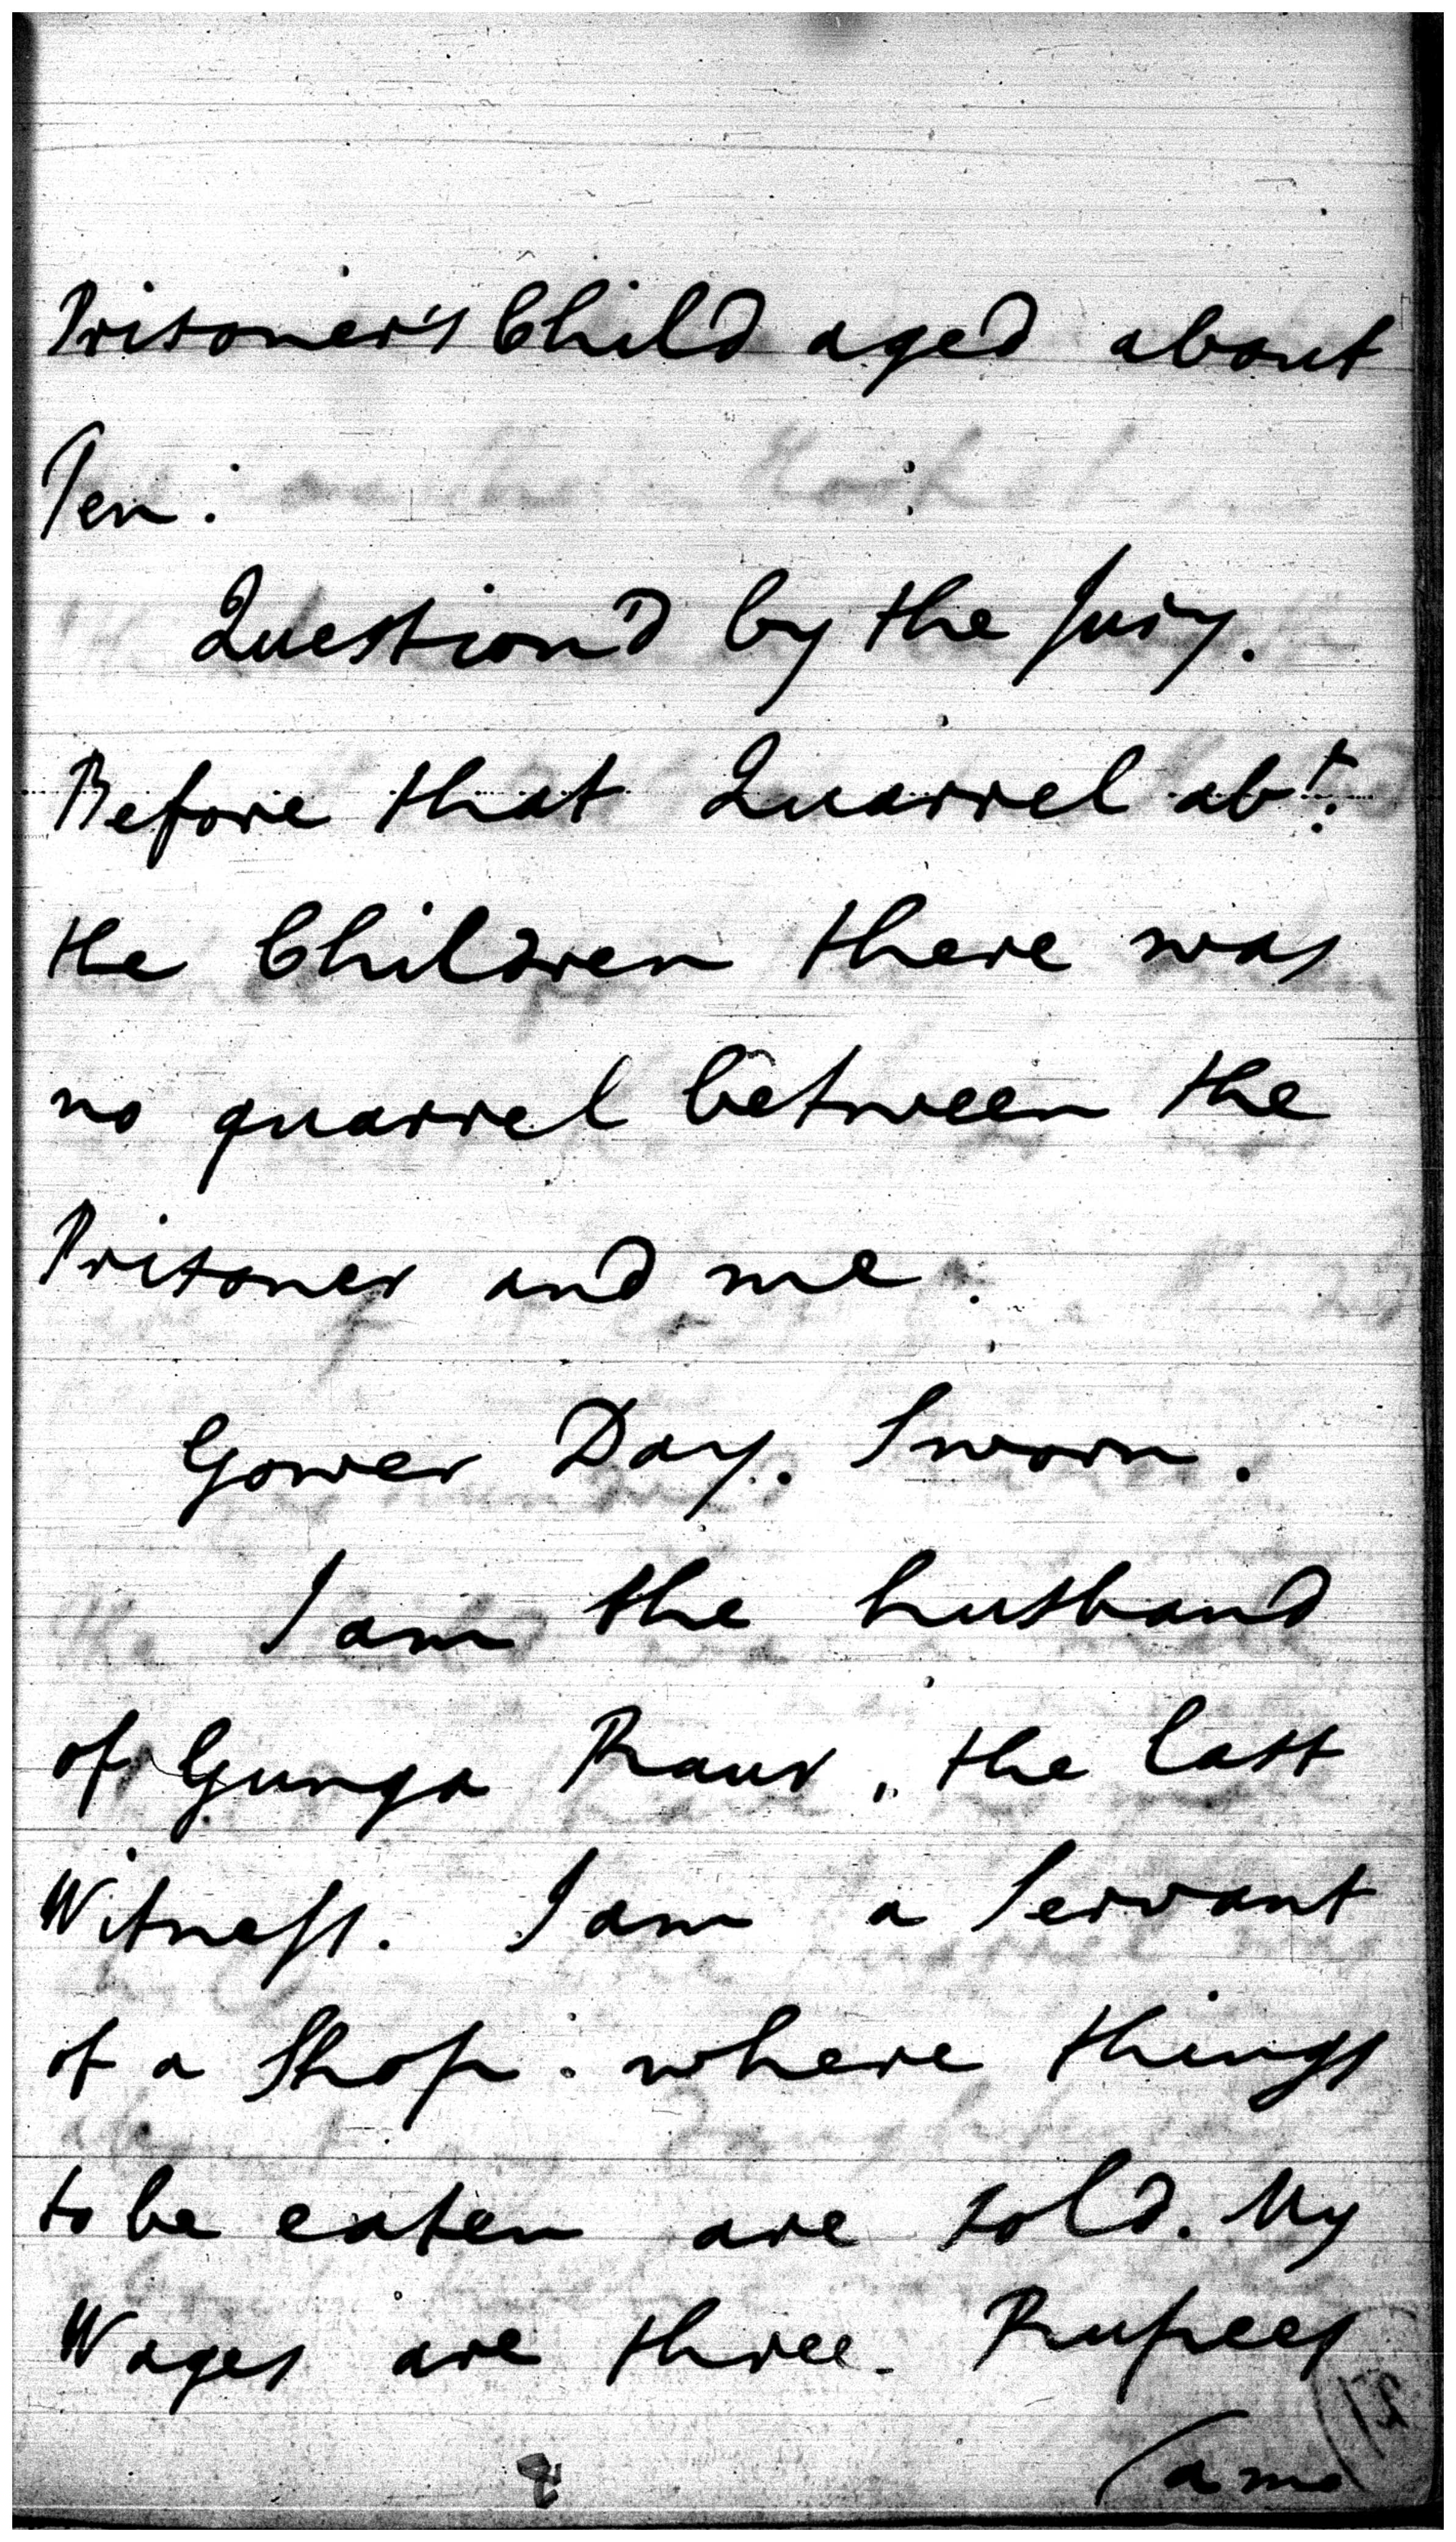 Prisoner's Child aged about
Ten.
Question'd by the Jury.
Before that Quarrel abt.
the Children there was
no quarrel between the
Prisoner and me.
Gower Day. Sworn.
I am the husband
of Gunga Raur, the last
Witness. I am a Servant
of a Shop: where things
to be eaten are sold. My
Wages are three Rupees
(a mo